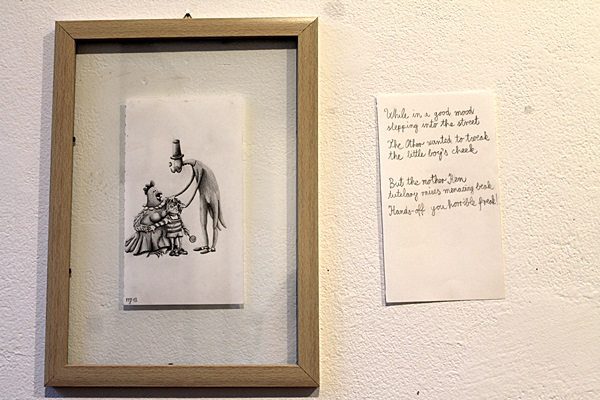 While in a good mood
stepping into the street
The Other wanted to tweak
the little boy's cheek
But the mother Hen
tutelary raises menacing beak
Hands off you horrible freak!